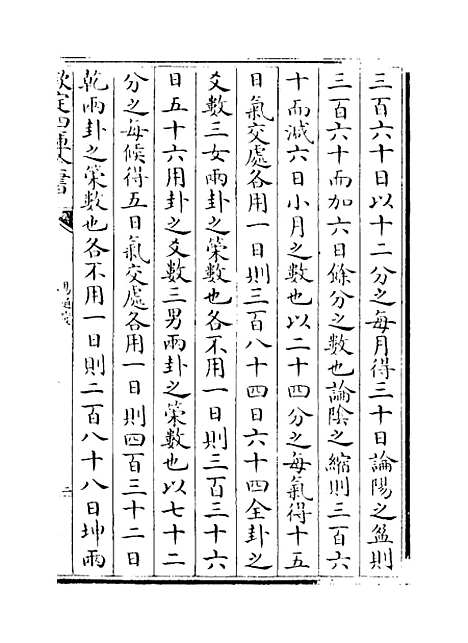 三百六十日以十二分之每月得三十日論陽之盈則
三百六十而加六日餘分之數也論陰之縮則三百六
十而減六日小月之數也以二十四分之每氣得十五
日氣交處各用一日則三百八十四日六十四全卦之
爻數三女兩卦之䇿數也各不用一日則三百三十六
日五十六用卦之爻數三男兩卦之䇿數也以七十二
分之每候得五日氣交處各用一日則四百三十二日
乾兩卦之䇿數也各不用一日則二百八十八日坤兩
欽定四庫全書